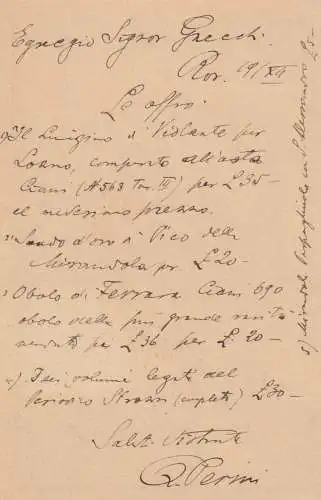 Egregio Signor Gnecchi.
Rov. 19/XII
Le offro:
1) Il Luigino di Violante per
Loano, comperato all'asta
Ciani (N 568 Tav. III) per £35-
al medesimo prezzo.
2) Scudo d'oro di Pico della
Mirandola pr. £20-
3) Obolo di Ferrara Ciani 690
obolo della più grande rarità
venduto per £36 per £. 20-
4) I sei volumi legati del
Periodico Strozzi (completo) £30-
Saluti distinti
Q. Perini
5) Mirandola £5-